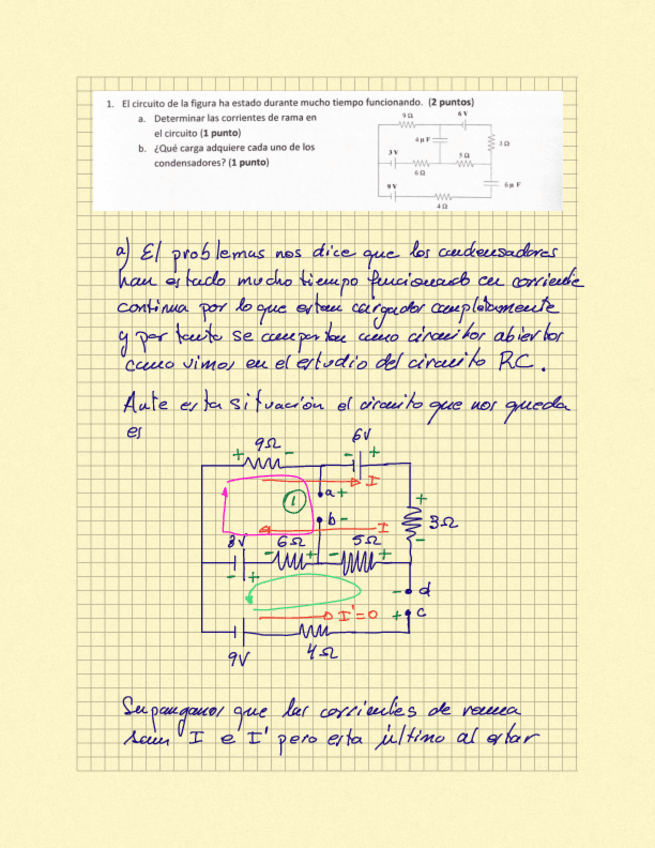 1. El circuito de la figura ha estado durante mucho tiempo funcionando. (2 puntos)
a. Determinar las corrientes de rama en
el circuito (1 punto)
b. ¿Qué carga adquiere cada uno de los
condensadores? (1 punto)
9 Ω
6 V
4 μ F
3 Ω
3 V
5 Ω
6 Ω
9 V
6 μ F
4 Ω
a) El problemas nos dice que los condensadores
han estado mucho tiempo funcionando en corriente
continua por lo que estan cargados completamente
y por tanto se comportan como circuitos abiertos
como vimos en el estudio del circuito RC.
Ante esta situación el circuito que nos queda
es
9Ω
6V
+ - - +
I
1
a +
b -
I
+
3Ω
-
3V
6Ω
5Ω
- + - + - +
- d
+ c
I'=0
9V
4Ω
Supongamos que las corrientes de rama
sean I e I' pero esta último al estar